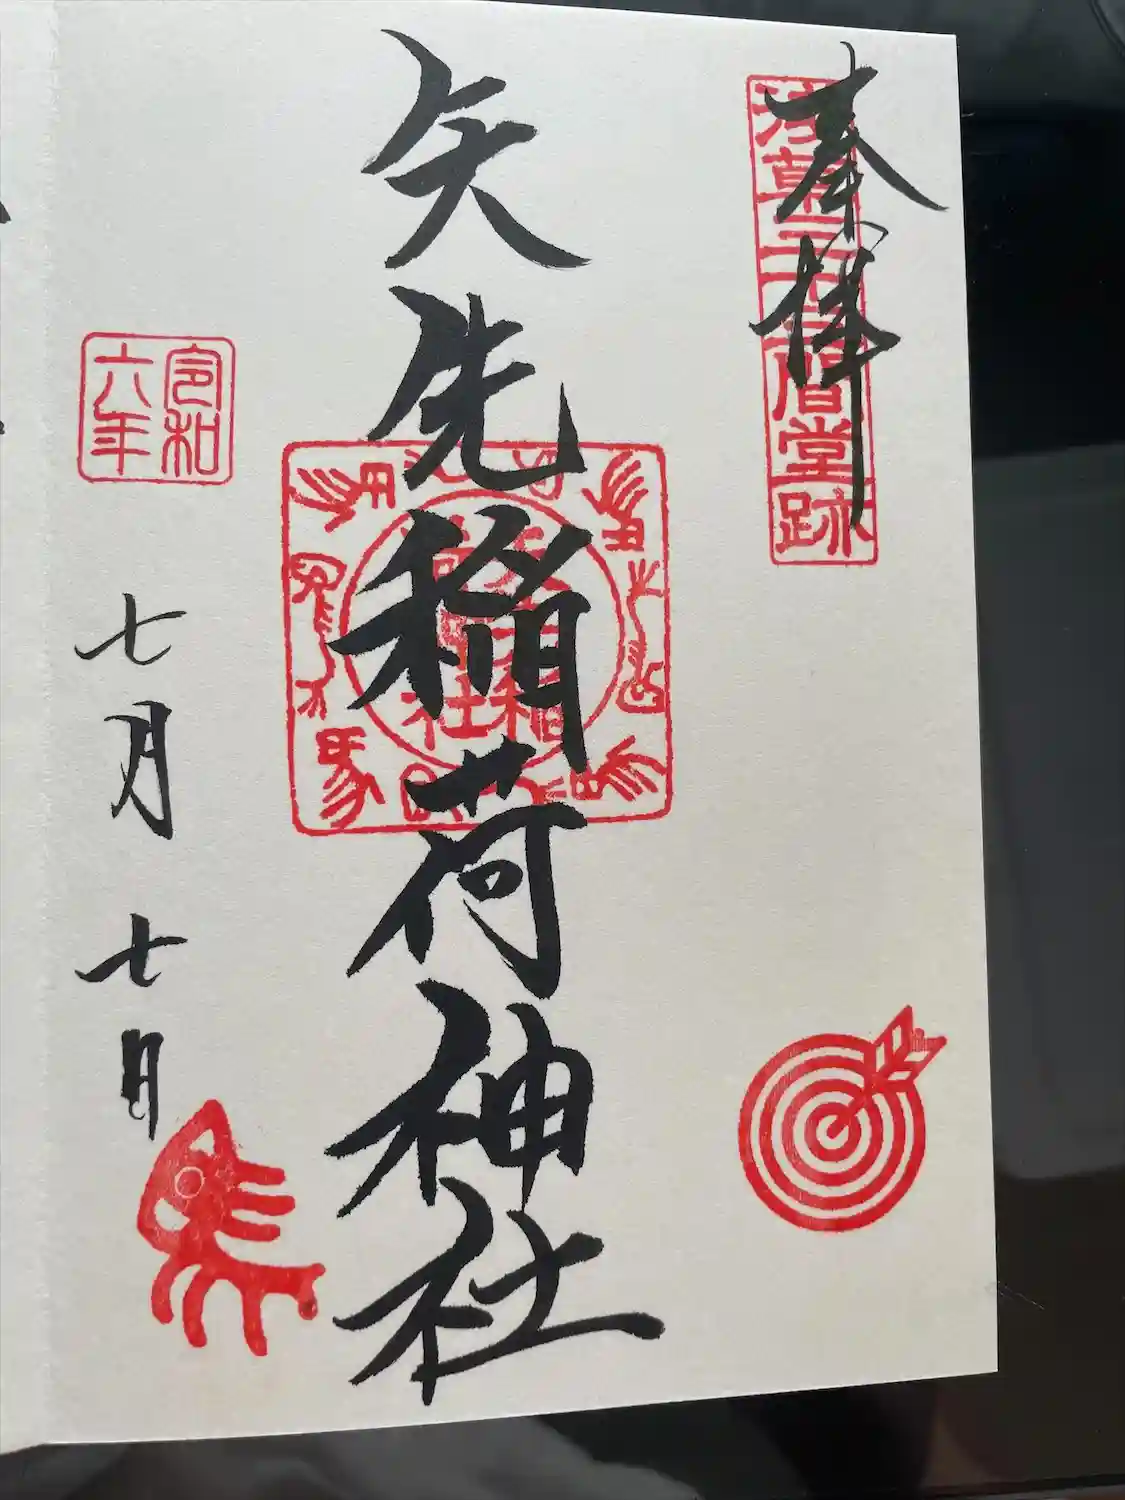 奉拝
浅草三十三間堂跡
矢先稲荷神社
令和
六年
七月七日